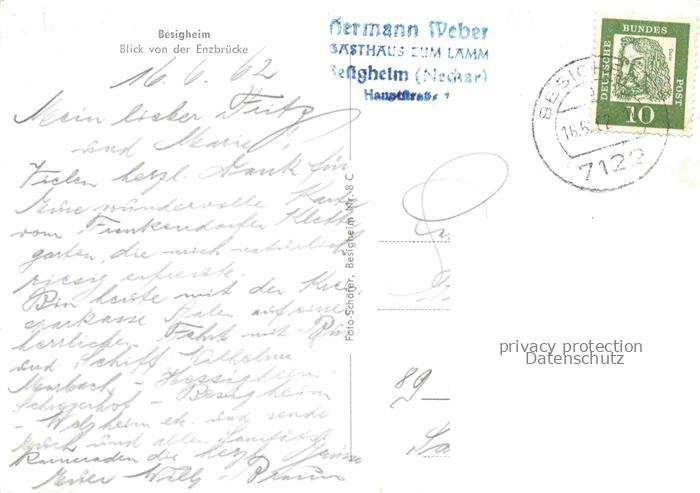 Besigheim
Blick von der Enzbrücke
Hermann Weber
GASTHAUS ZUM LAMM
Besigheim (Neckar)
Hauptstraße
DEUTSCHE BUNDES POST
10
BESIGHEIM
16.6.62
7122
16.6.62
Mein lieber Fritz
und Marie!
Vielen herzl. Dank für
wundervolle Karte
vom Funkendorfer Kletter-
garten, die mich natürlich
riesig erfreute.
Bin heute mit der
sparkasse Aalen auf eine
herrliche Fahrt mit
und Schiff Wilhelma
Marbach - Hessigheim -
Besigheim
- Welzheim etc. und sende
Euch und allen
Kameraden die herzl. Grüsse
Euer Willy
Foto-Schäfer, Besigheim Nr. 8 C
89
privacy protection
Datenschutz